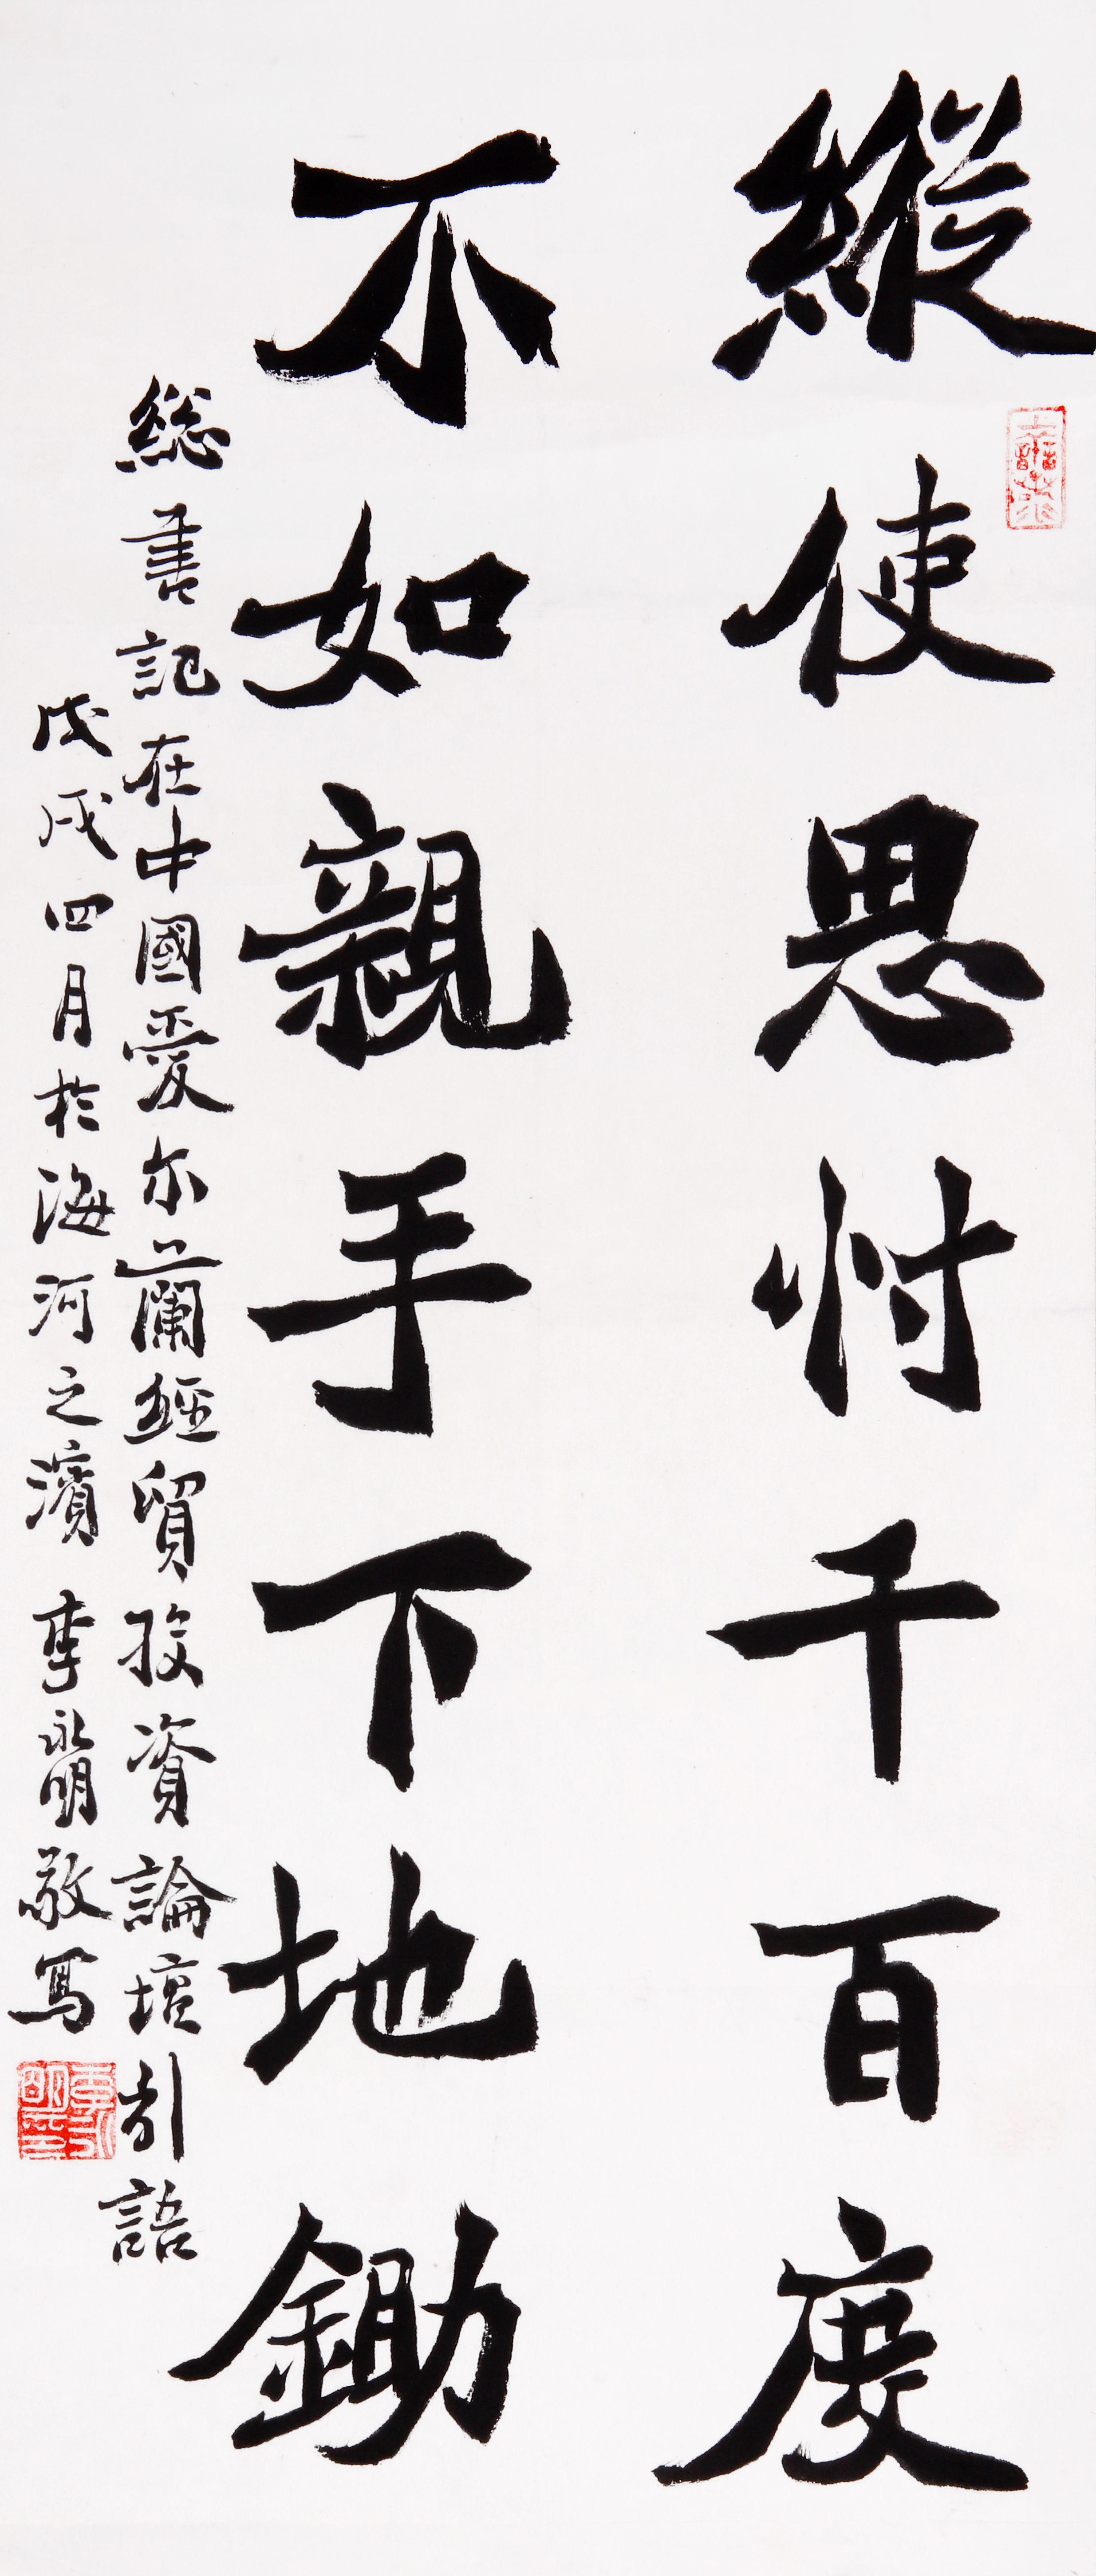 縱使思忖千百度
不如親手下地鋤
総書記在中國愛尔蘭經貿投資論壇引語
戊戌四月於海河之濱 李永明敬寫